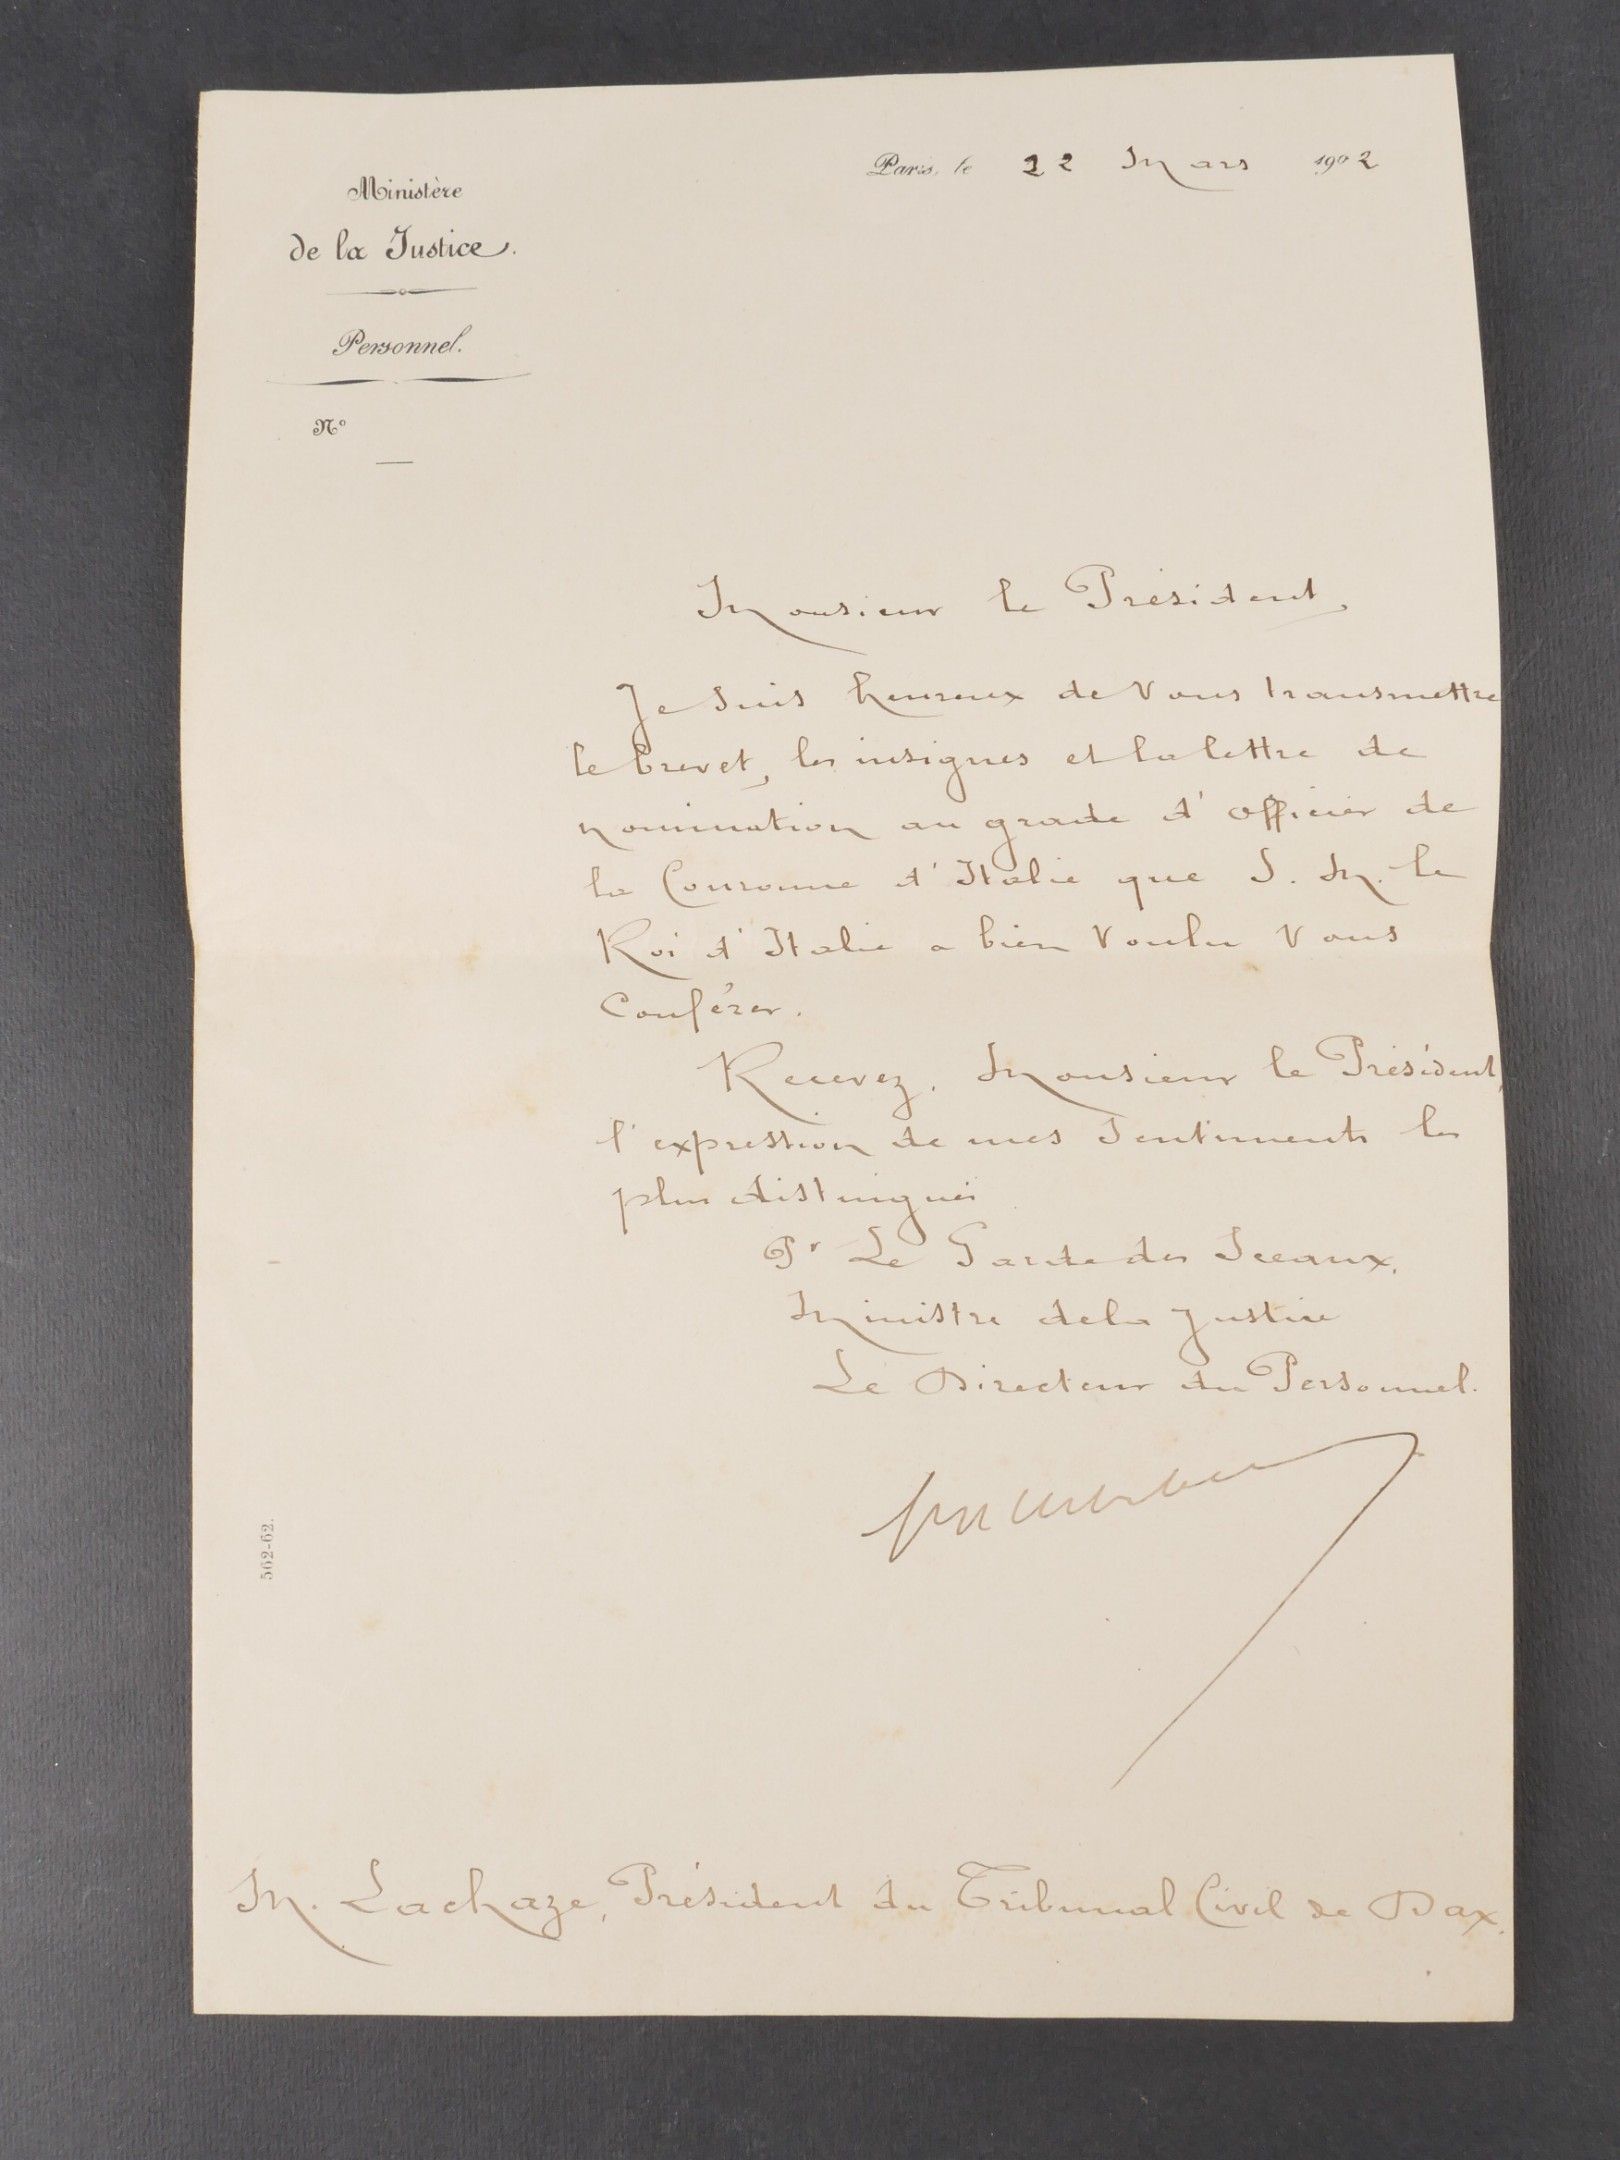 Ministère
de la Justice.
Personnel.
N°
Paris, le 22 Mars 1902
Monsieur le Président,
Je suis heureux de vous transmettre
le brevet, les insignes et la lettre de
nomination au grade d'officier de
la Couronne d'Italie que S. M. le
Roi d'Italie a bien voulu vous
conférer.
Recevez, Monsieur le Président,
l'expression de mes sentiments les
plus distingués
Pr Le Garde des Sceaux,
Ministre de la Justice
Le Directeur du Personnel.
562-62.
M. Lachaze, Président du Tribunal Civil de Dax.